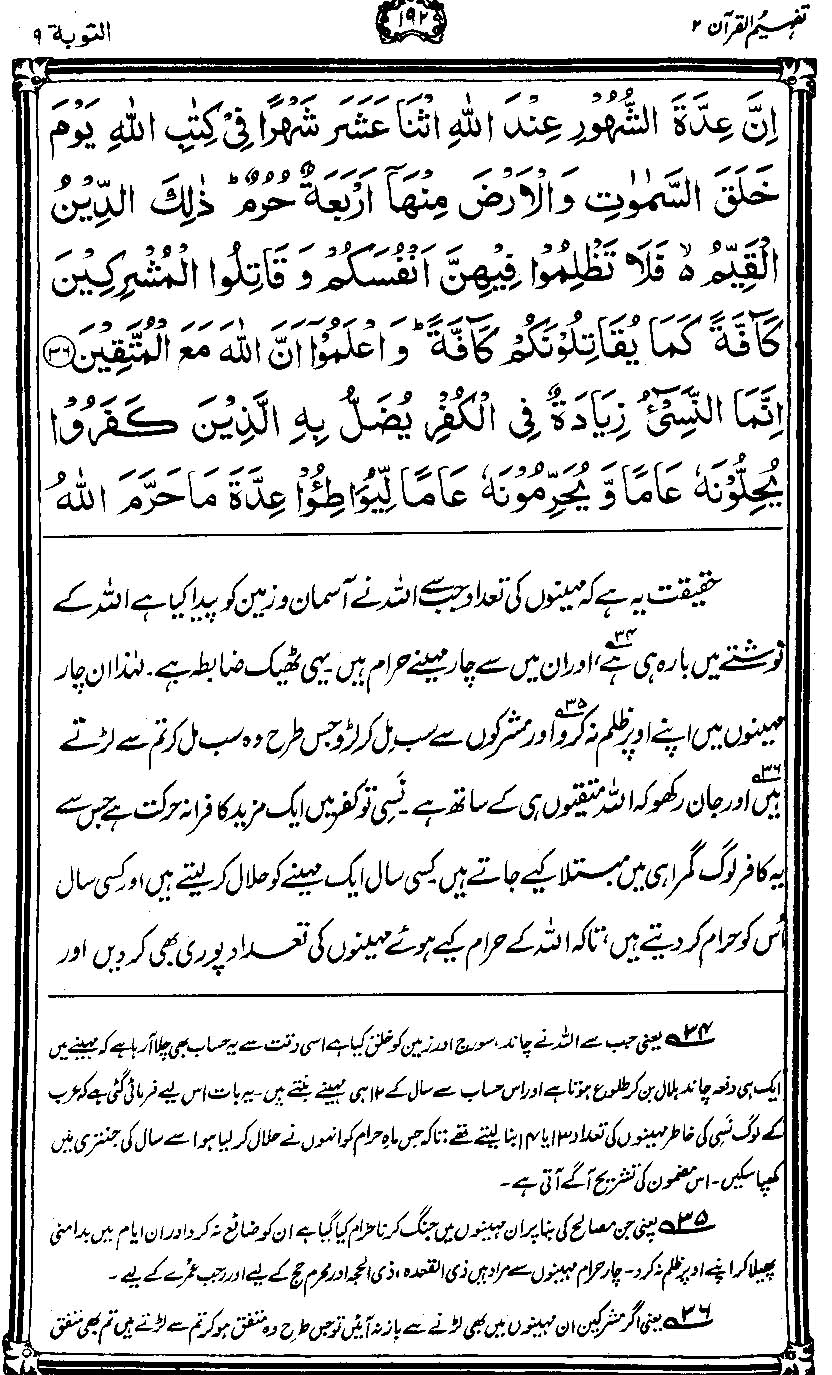 تفہیم القرآن ۲
۱۹۲
التوبة ۹
اِنَّ عِدَّةَ الشُّهُوْرِ عِنْدَ اللهِ اثْنَا عَشَرَ شَهْرًا فِيْ كِتٰبِ اللهِ يَوْمَ
خَلَقَ السَّمٰوٰتِ وَالْاَرْضَ مِنْهَآ اَرْبَعَةٌ حُرُمٌ ؕ ذٰلِكَ الدِّيْنُ
الْقَيِّمُ ۙ فَلَا تَظْلِمُوْا فِيْهِنَّ اَنْفُسَكُمْ وَ قَاتِلُوا الْمُشْرِكِيْنَ
كَآفَّةً كَمَا يُقَاتِلُوْنَكُمْ كَآفَّةً ؕ وَ اعْلَمُوْٓا اَنَّ اللهَ مَعَ الْمُتَّقِيْنَ ۳۶
اِنَّمَا النَّسِيْٓءُ زِيَادَةٌ فِي الْكُفْرِ يُضَلُّ بِهِ الَّذِيْنَ كَفَرُوْا
يُحِلُّوْنَهٗ عَامًا وَّ يُحَرِّمُوْنَهٗ عَامًا لِّيُوَاطِـُٔوْا عِدَّةَ مَا حَرَّمَ اللهُ
حقیقت یہ ہے کہ مہینوں کی تعداد جب سے اللہ نے آسمان و زمین کو پیدا کیا ہے اللہ کے
نوشتے میں بارہ ہی ہے۳۴، اور ان میں سے چار مہینے حرام ہیں۔ یہی ٹھیک ضابطہ ہے۔ لہٰذا ان چار
مہینوں میں اپنے اوپر ظلم نہ کرو۳۵ اور مشرکوں سے سب مل کر لڑو جس طرح وہ سب مل کر تم سے لڑتے
ہیں۳۶ اور جان رکھو کہ اللہ متقیوں ہی کے ساتھ ہے۔ نَسی تو کفر میں ایک مزید کافرانہ حرکت ہے جس سے
یہ کافر لوگ گمراہی میں مبتلا کیے جاتے ہیں۔ کسی سال ایک مہینے کو حلال کر لیتے ہیں اور کسی سال
اُس کو حرام کر دیتے ہیں، تاکہ اللہ کے حرام کیے ہوئے مہینوں کی تعداد پوری بھی کر دیں اور
۳۴ یعنی جب سے اللہ نے چاند، سورج اور زمین کو خلق کیا ہے اسی وقت سے یہ حساب بھی چلا آ رہا ہے کہ مہینے میں
ایک ہی دفعہ چاند ہلال بن کر طلوع ہوتا ہے اور اس حساب سے سال کے ۱۲ ہی مہینے بنتے ہیں۔ یہ بات اس لیے فرمائی گئی ہے کہ عرب
کے لوگ نَسی کی خاطر مہینوں کی تعداد ۱۳ یا ۱۴ بنا لیتے تھے، تاکہ جس ماہِ حرام کو انہوں نے حلال کر لیا ہو اسے سال کی جنتری میں
کھپا سکیں۔ اس مضمون کی تشریح آگے آتی ہے۔
۳۵ یعنی جن مصالح کی بنا پر ان مہینوں میں جنگ کرنا حرام کیا گیا ہے ان کو ضائع نہ کرو اور ان ایام میں بدامنی
پھیلا کر اپنے اوپر ظلم نہ کرو۔ چار حرام مہینوں سے مراد ہیں ذی القعدہ، ذی الحجہ اور محرم حج کے لیے اور رجب عمرے کے لیے۔
۳۶ یعنی اگر مشرکین ان مہینوں میں بھی لڑنے سے باز نہ آئیں تو جس طرح وہ متفق ہو کر تم سے لڑتے ہیں تم بھی متفق